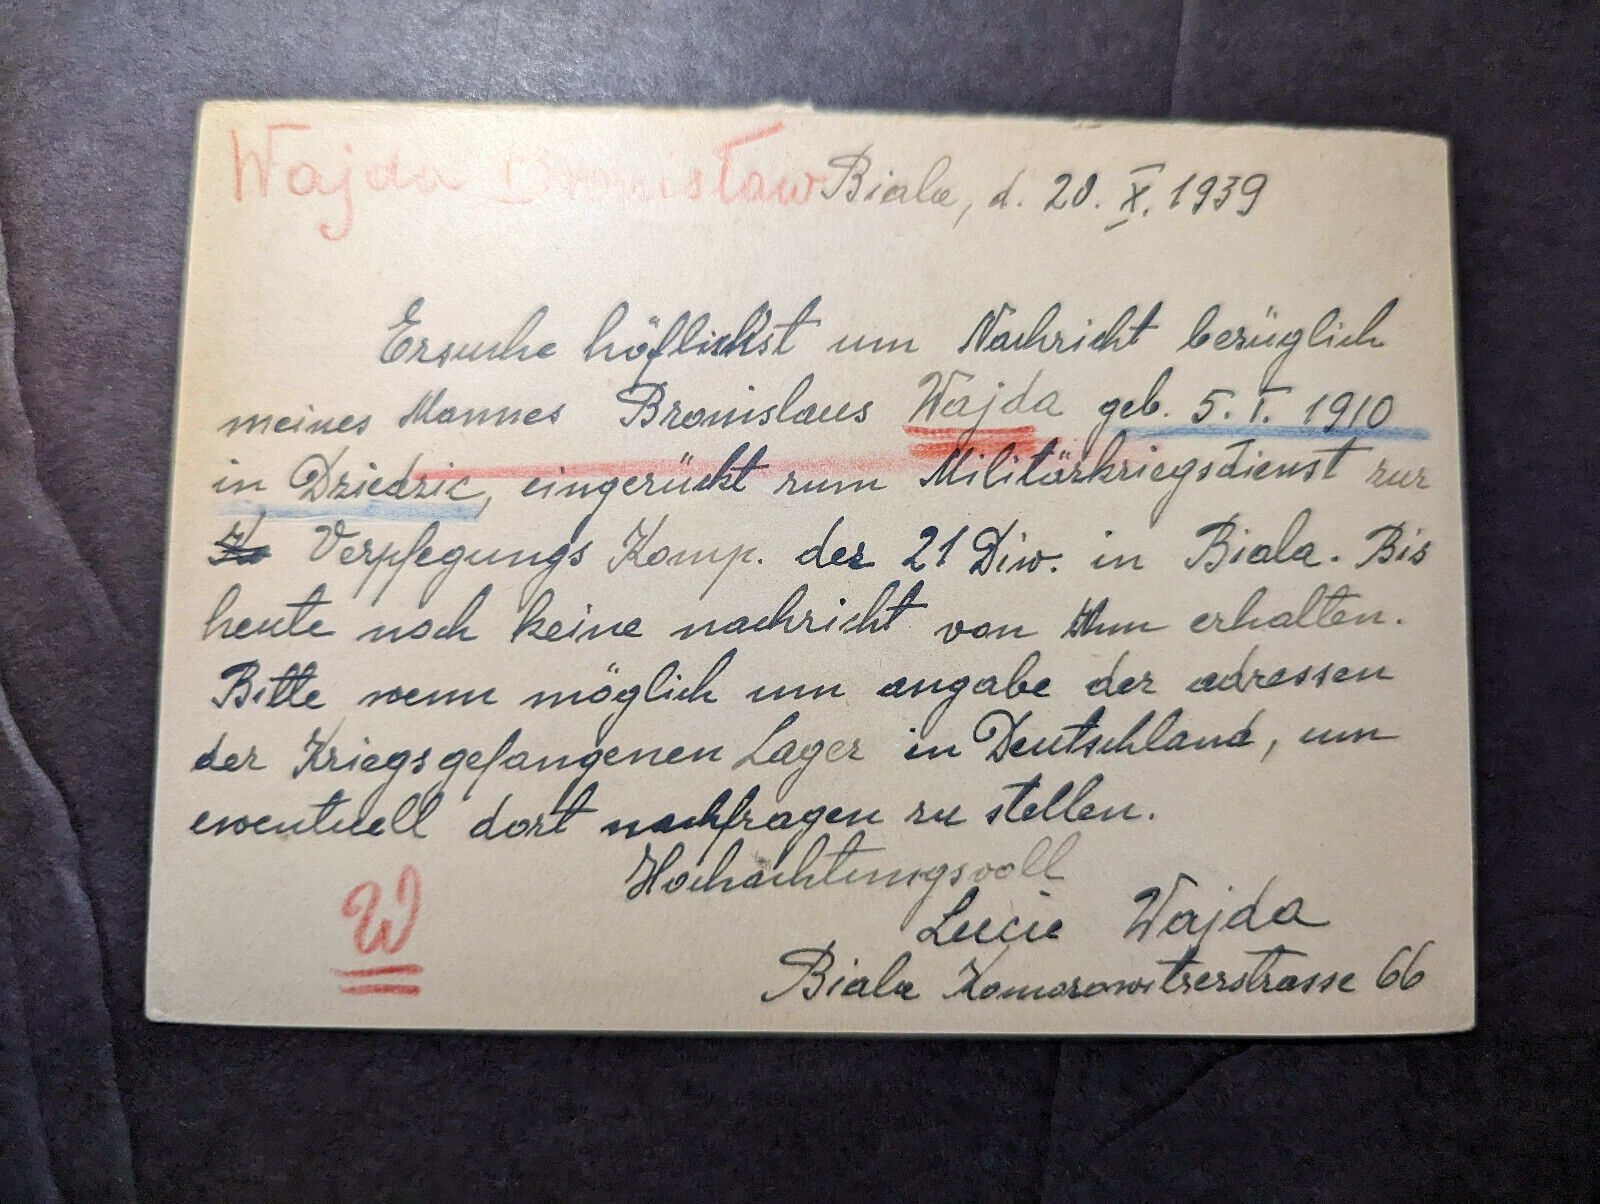 Wajda Bronisław Biala, d. 20. X. 1939
Ersuche höflichst um Nachricht bezüglich
meines Mannes Bronislaus Wajda geb. 5. I. 1910
in Dziedzic, eingerückt zum Militärkriegsdienst zur
Verpflegungs Komp. der 21 Diw. in Biala. Bis
heute noch keine nachricht von Ihm erhalten.
Bitte wenn möglich um angabe der adressen
der Kriegsgefangenen Lager in Deutschland, um
ewentuell dort nachfragen zu stellen.
Hochachtungsvoll
Lucie Wajda
W
Biala Komorowitzerstrasse 66